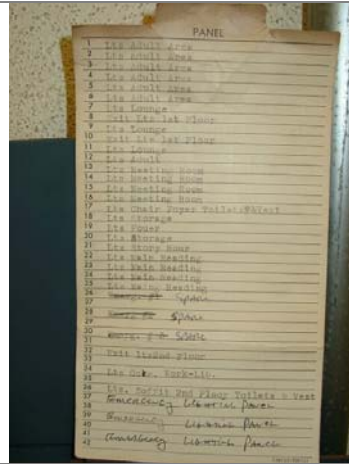 PANEL
1 Lts Adult Area
2 Lts Adult Area
3 Lts Adult Area
4 Lts Adult Area
5 Lts Adult Area
6 Lts Adult Area
7 Lts Lounge
8 Exit Lts 1st Floor
9 Lts Lounge
10 Exit Lts 1st Floor
11 Lts Lounge
12 Lts Adult
13 Lts Meeting Room
14 Lts Meeting Room
15 Lts Meeting Room
16 Lts Meeting Room
17 Lts Chair Foyer Toilets
18 Lts Storage
19 Lts Foyer
20 Lts Storage
21 Lts Story Hour
22 Lts Main Reading
23 Lts Main Reading
24 Lts Main Reading
25 Lts Reading
26
27 SPARE
28 SPARE
29
30
31 SPARE
32
33 Exit 2nd Floor
34
35 Lts Work-
36 Lts. Soffit 2nd Floor Toilets & Vest
37 Emergency Lighting Panel
38
39 Emergency Lighting Panel
40
41 Emergency Lighting Panel
42